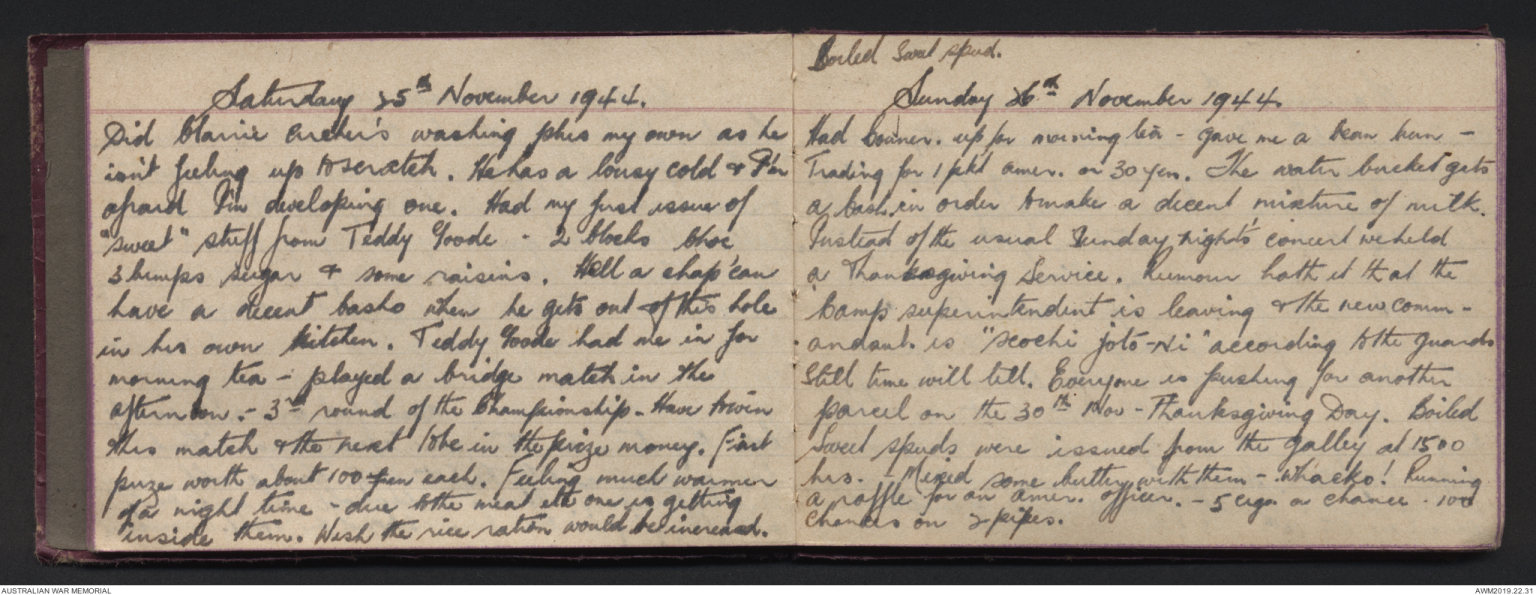 Saturday 25th November 1944.
Did Clarrie 's washing plus my own as he
isn't feeling up to scratch. He has a lousy cold & I'm
afraid I'm developing one. Had my first issue of
"sweet" stuff from Teddy Goode - 2 blocks choc
3 lumps sugar & some raisins. Hell a chap can
have a decent basho when he gets out of this hole
in his own kitchen. Teddy Goode had me in for
morning tea - played a bridge match in the
afternoon. - 3rd round of the Championship. Have to win
this match & the next to be in the prize money. First
prize worth about 100 yen each. Feeling much warmer
of a night time - due to the meat etc one is getting
inside them. Wish the rice ration would be increased.
Boiled Sweet spud.
Sunday 26th November 1944.
Had up for morning tea - gave me a bean bun -
Trading for 1 pkt amer. or 30 yen. The water bucket gets
a bash in order to make a decent mixture of milk.
Instead of the usual Sunday night's concert we held
a Thanksgiving Service. Rumour hath it that the
Camp superintendent is leaving & the new comm-
andant is " joto-ni" according to the guards
Still time will tell. Everyone is pushing for another
parcel on the 30th Nov - Thanksgiving Day. Boiled
Sweet spuds were issued from the galley at 1500
hrs. Mixed some butter with them - Whacko! Running
a raffle for an Amer. officer. - 5 cigs a chance - 100
chances on 2 pipes.
AUSTRALIAN WAR MEMORIAL
AWM2019.22.31